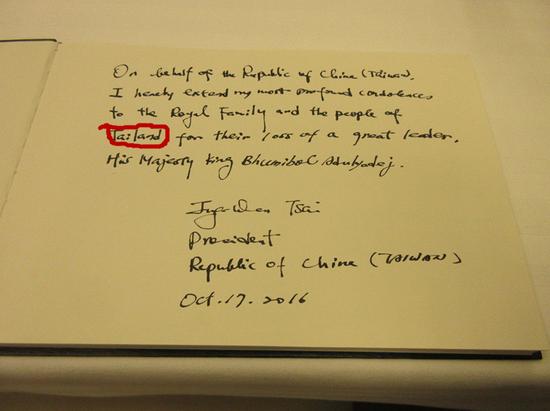 On behalf of the Republic of China (Taiwan,
I hereby extend my most profound condolences
to the Royal Family and the people of
Tailand for their loss of a great leader,
His Majesty King Bhumibol Adulyadej.
Ing-wen Tsai
President
Republic of China (TAIWAN)
Oct. 17. 2016